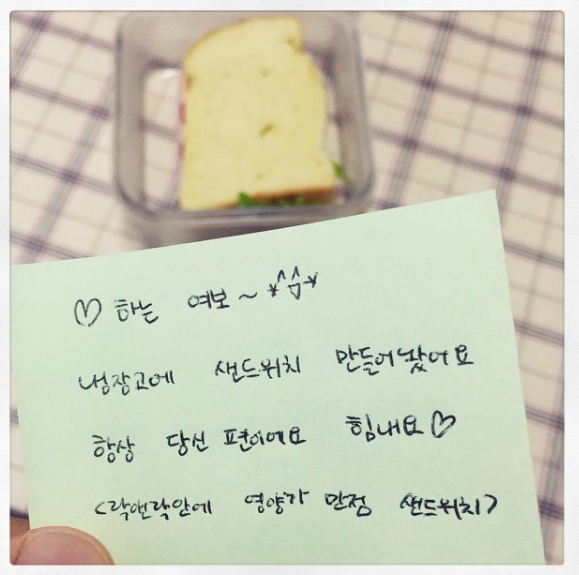 ♡ 하는 여보~ *^^*
냉장고에 샌드위치 만들어놨어요
항상 당신 편이에요 힘내요♡
<락앤락안에 영양가 만점 샌드위치>